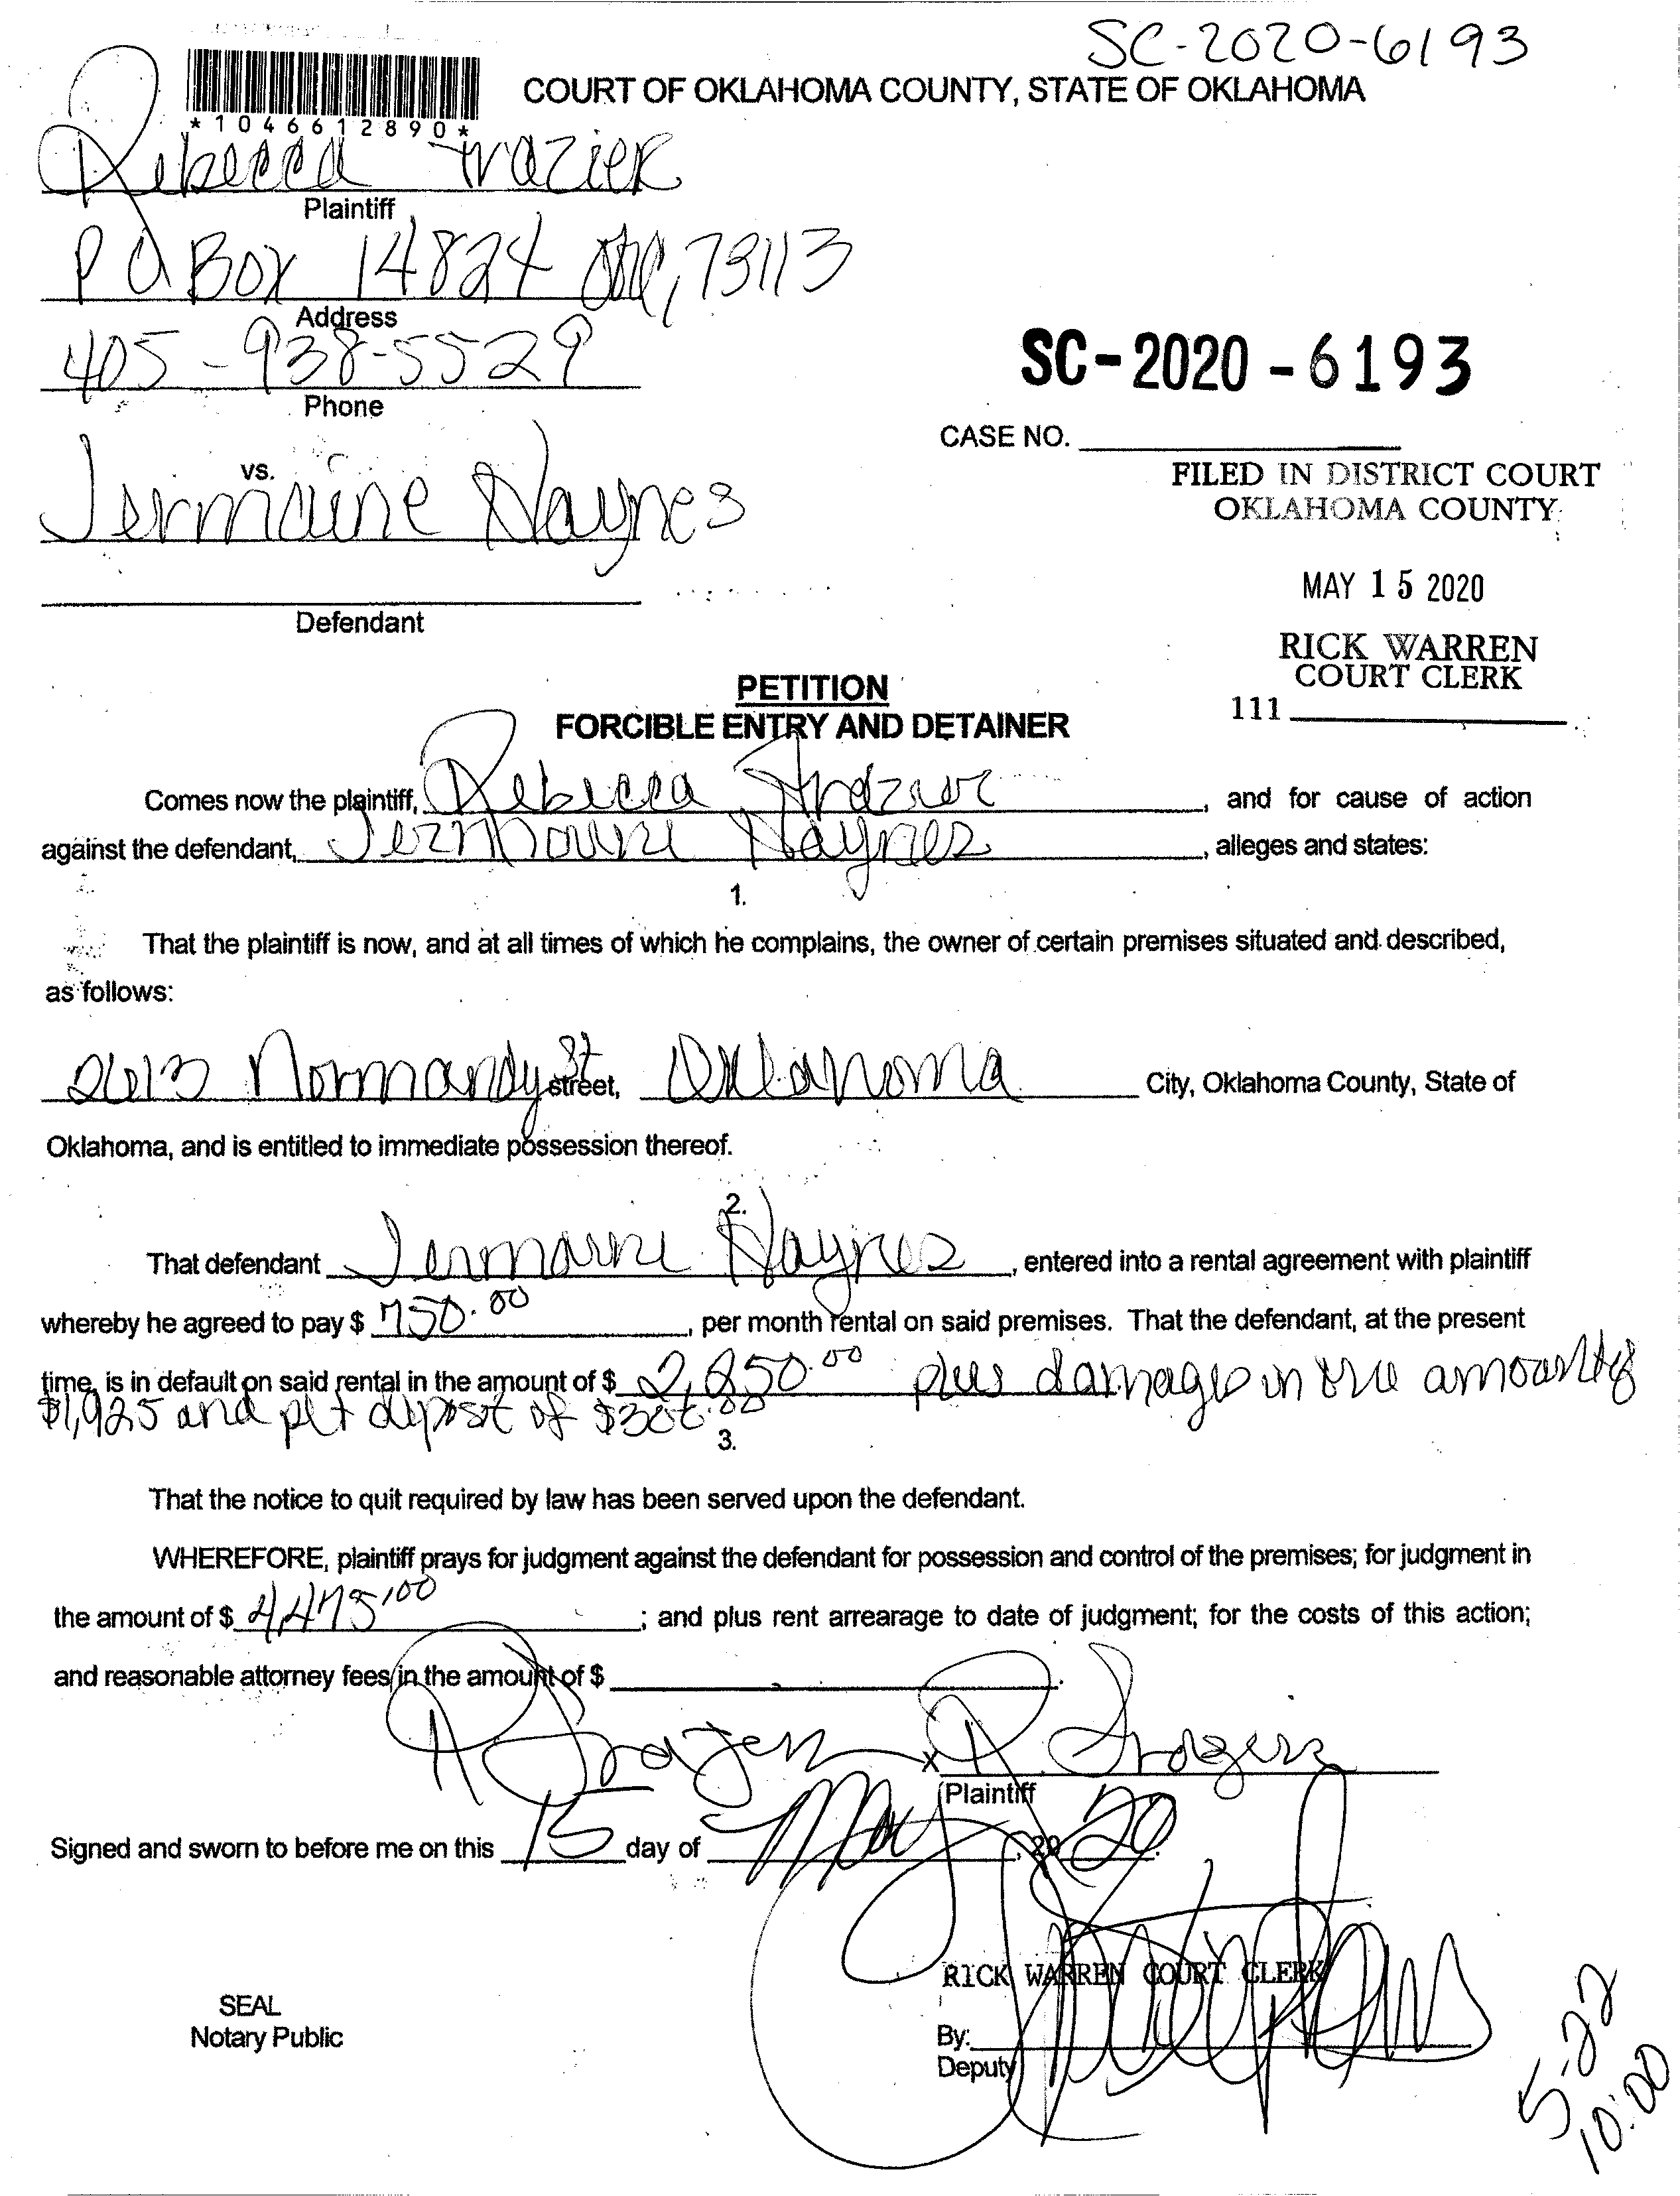 SC-2020-6193
*1046612890*
COURT OF OKLAHOMA COUNTY, STATE OF OKLAHOMA
Rebecca Frazier
Plaintiff
P O Box 14824 OKC, 73113
Address
405-938-5529
Phone
SC-2020-6193
CASE NO.
vs.
Jermaine Haynes
FILED IN DISTRICT COURT
OKLAHOMA COUNTY
MAY 15 2020
Defendant
RICK WARREN
COURT CLERK
111
PETITION
FORCIBLE ENTRY AND DETAINER
Comes now the plaintiff, Rebecca Frazier, and for cause of action
against the defendant, Jermaine Haynes, alleges and states:
1.
That the plaintiff is now, and at all times of which he complains, the owner of certain premises situated and described,
as follows:
2613 Normandy St street, Oklahoma City, Oklahoma County, State of
Oklahoma, and is entitled to immediate possession thereof.
2.
That defendant Jermaine Haynes, entered into a rental agreement with plaintiff
whereby he agreed to pay $ 750.00, per month rental on said premises. That the defendant, at the present
time, is in default on said rental in the amount of $ 2,250.00 plus damages in the amount of
$1,925 and pet deposit of $300.00
3.
That the notice to quit required by law has been served upon the defendant.
WHEREFORE, plaintiff prays for judgment against the defendant for possession and control of the premises; for judgment in
the amount of $ 4,475.00; and plus rent arrearage to date of judgment; for the costs of this action;
and reasonable attorney fees in the amount of $
R Frazier x R Frazier
Plaintiff
Signed and sworn to before me on this 15 day of May, 2020.
RICK WARREN COURT CLERK
SEAL
Notary Public
By:
Deputy
5-22
10:00